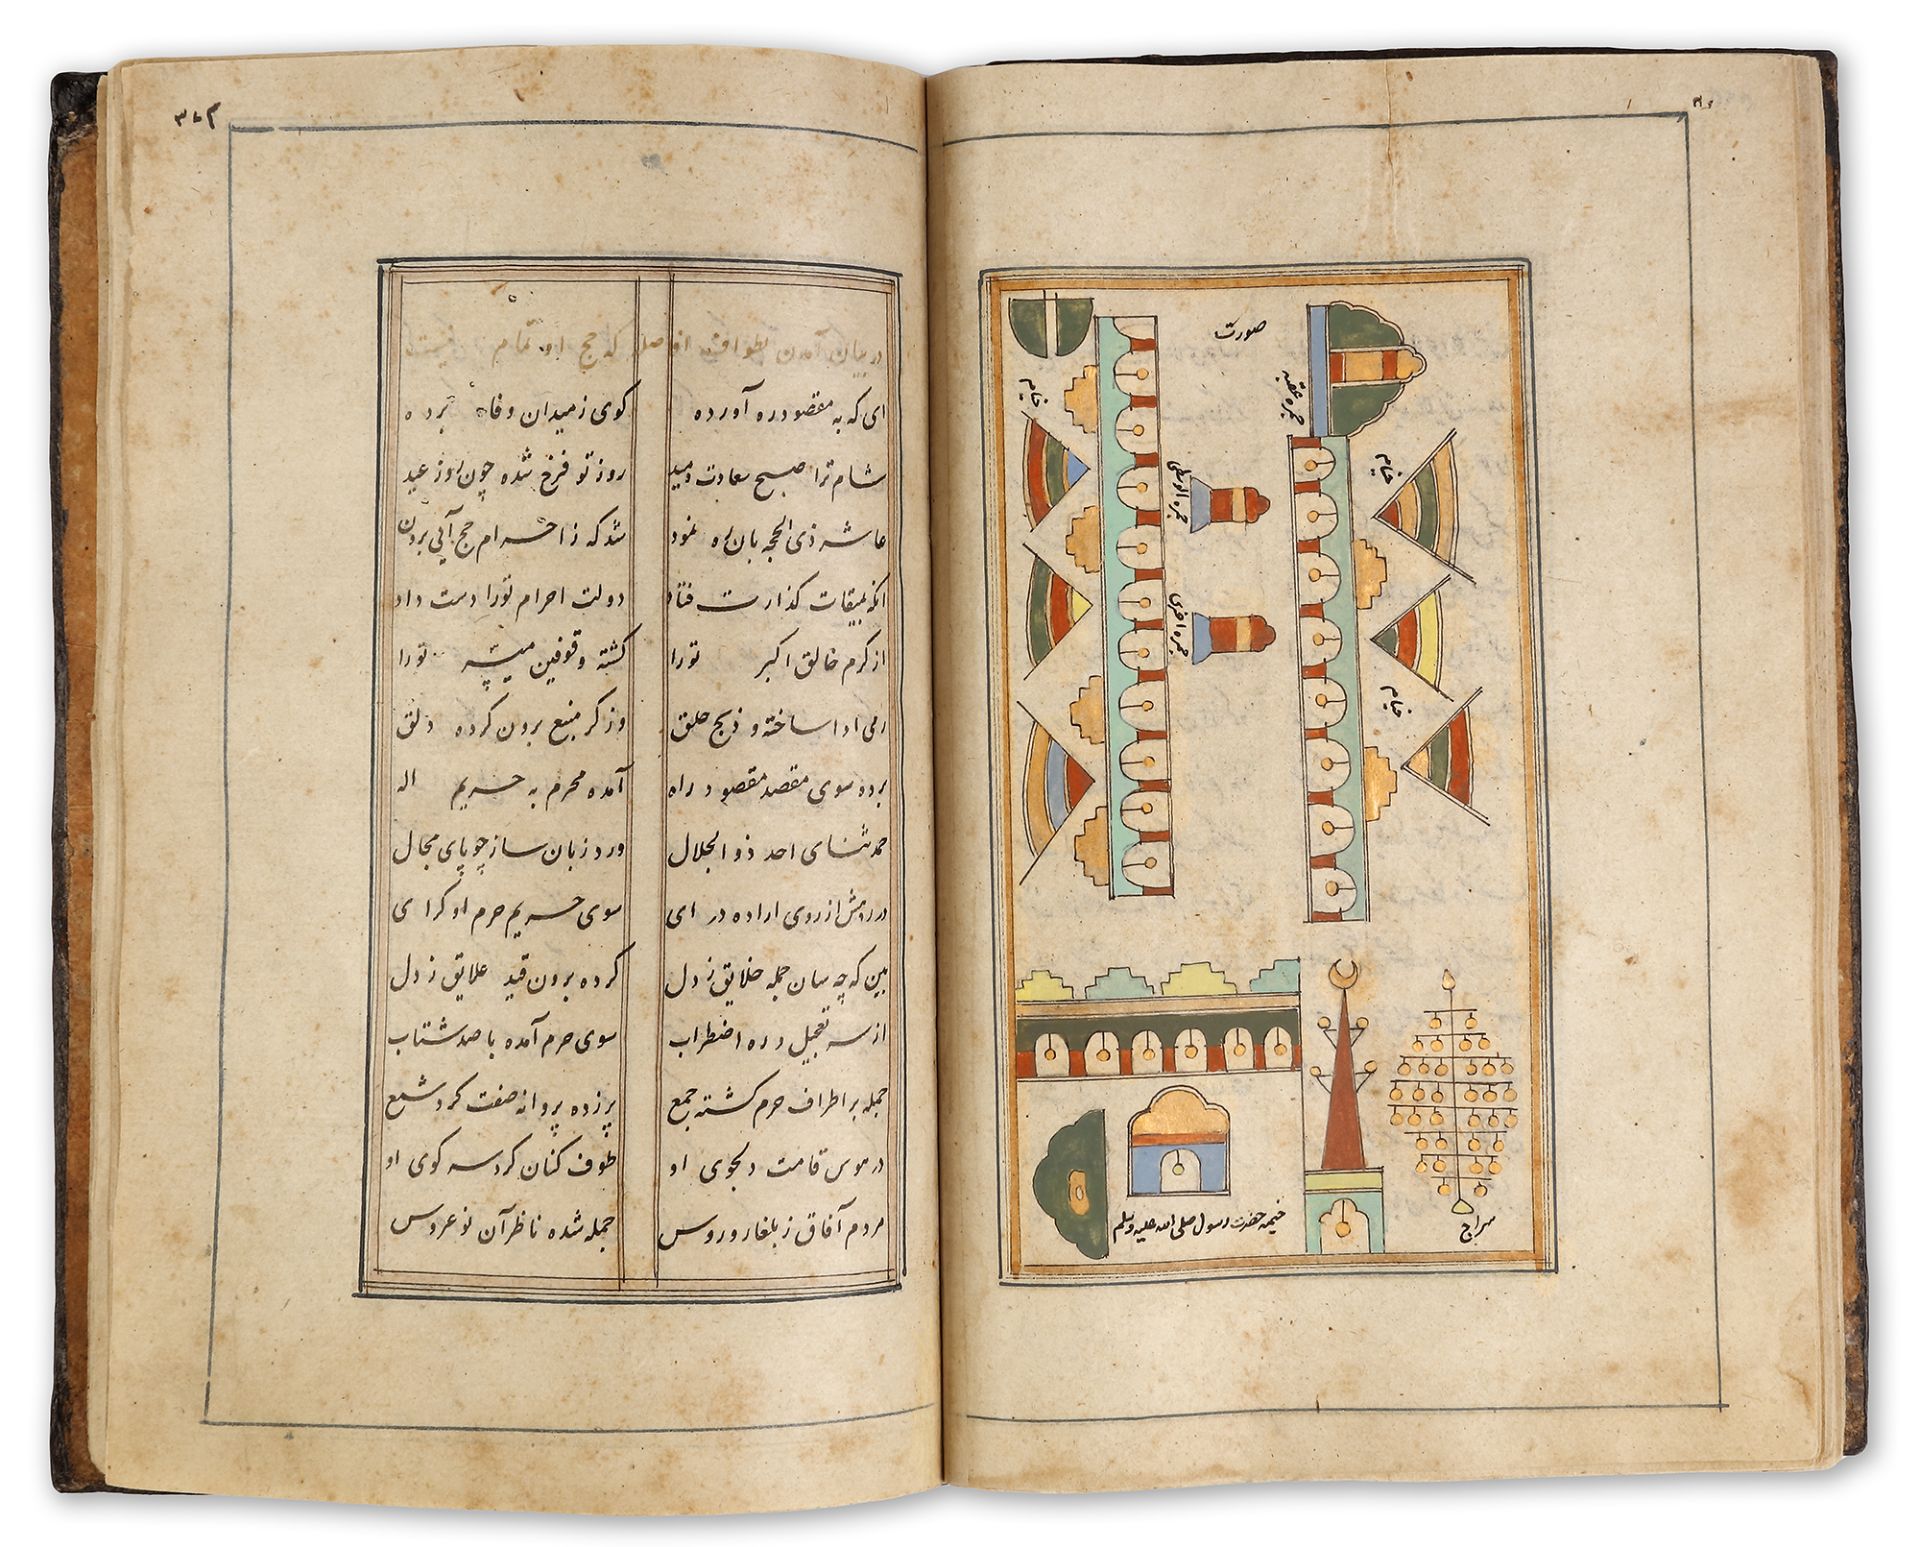 صورت
جمره عقبه
خیام
خیام
خیام
جمرة الوسطی
جمره اخری
سراج
خیمه حضرت رسول صلی الله علیه وسلم
در بیان آمدن بطواف افاضه که حج او تمام نیست
ای که به مقصود ره آورده کوی ز میدان وفا برده
شام ترا صبح سعادت دمید روز تو فرخ شده چون روز عید
عاشر ذی الحجه بان ره نمود شد که ز احرام حج آئی برون
انکه بمیقات کذارت فتاد دولت احرام تورا دست داد
از کرم خالق اکبر تورا کشته وقوفین میسر تورا
رمی ادا ساخته و ذبح حلق وز کر منبع برون کرده دلق
برده سوی مقصد مقصود راه آمده محرم به حریم اله
حمد ثنای احد ذو الجلال ورد زبان ساز چو پای مجال
در ردمش از روی اراده در ای سوی حریم حرم او کرای
بین که چه سان جمله خلایق ز دل کرده برون قید علایق ز دل
از سر تعجیل و ره اضطراب سوی حرم آمده با صد شتاب
جمله بر اطراف حرم کشته جمع پر زده پروانه صفت کرد شمع
در هوس قامت دلجوی او طوف کنان کرد سر کوی او
مردم آفاق ز بلغار و روس جمله شده ناظر آن نو عروس